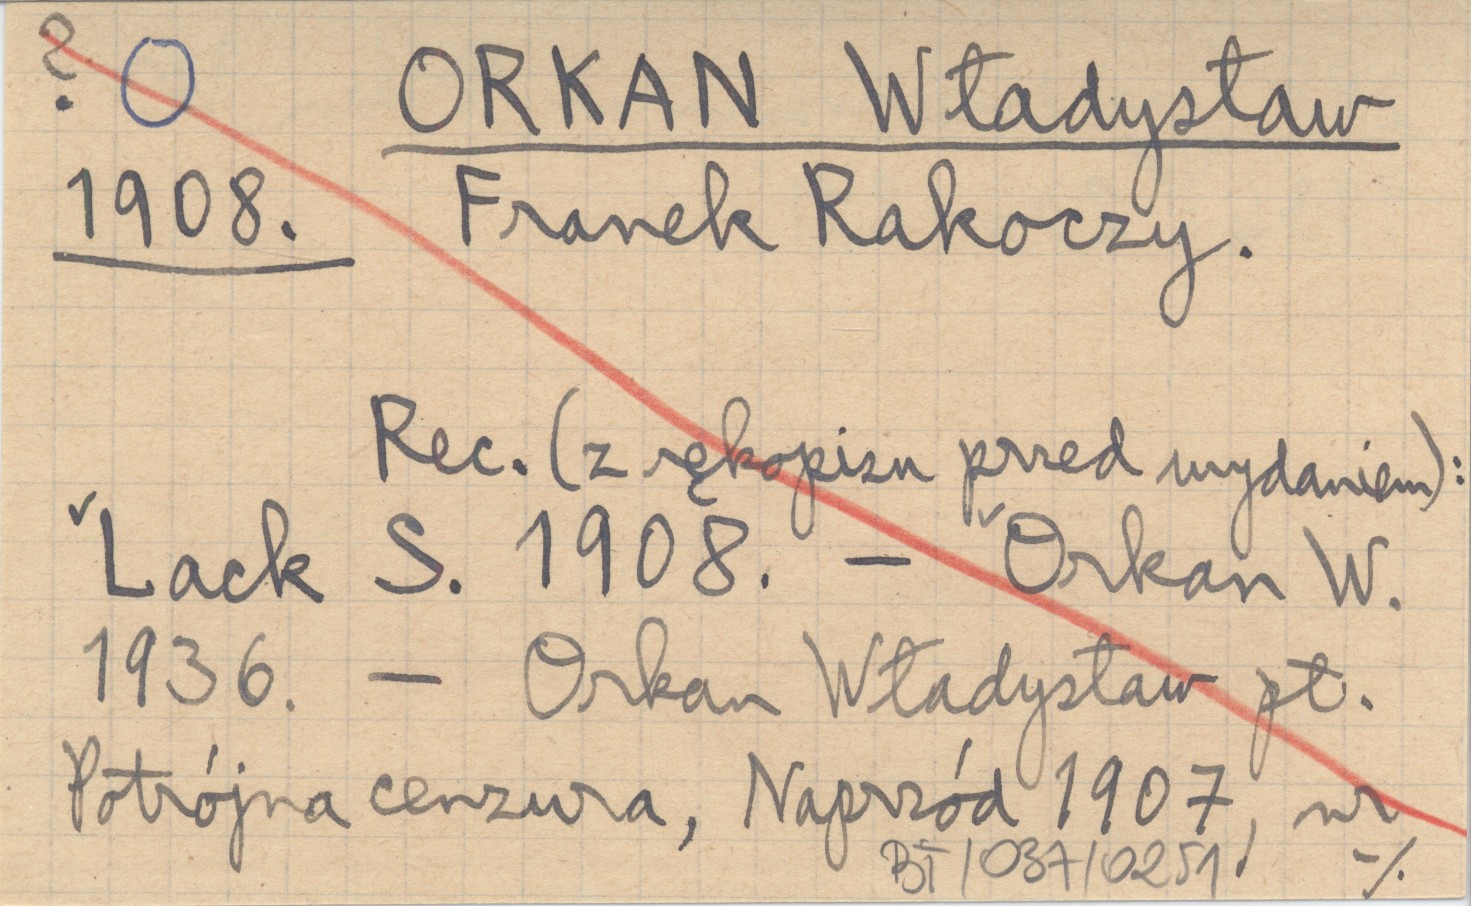 ? O ORKAN Władysław
1908. Franek Rakoczy.
Rec. (z rękopisu przed wydaniem):
Lack S. 1908. — Orkan W.
1936. — Orkan Władysław pt.
Potrójna cenzura, Naprzód 1907, nr
BT/037/0251 -/.